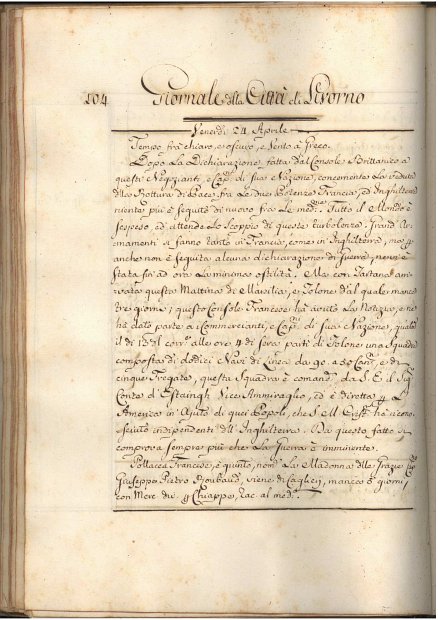 104 Giornale della Città di Livorno
Venerdì 24 Aprile
Tempo frà chiaro, e oscuro, e Vento à Greco.
Dopo La Dichiarazione fatta dal Console Brittanico a
questi Negozianti, e Cap.ni di sua Nazione, concernente La seduta
della Rottura di Pace frà Le due Potenze Francia, ed Inghilterra
niente più è seguito di nuovo frà Le med.me Tutto il Mondo è
sospeso, ed attende Lo Scoppio di queste turbolenze. Grand' Ar-
mamenti si fanno tanto in Francia, come in Inghilterra, ma p
anche non è seguita alcuna dichiarazione di Guerra, nemè
stata fin' ad ora La minima ostilità. Ma con Tartana arri-
vata questa Mattina di Marsilia, e Tolone d'al quale manca
tre giorni, questo Console Francese hà avuto La Notizia, e ne
hà dato parte a Commercianti, e Cap.ni di sua Nazione, qual
il dì 13 corr.e alle ore 4 di sera partì di Tolone una Squadra
composta di dodici Navi di Linea da 90 a 50 Can.ni e di
cinque Fregate, questa Squadra è comand.a da S. E. il Sig.
Conte d' Estaingh Vice Ammiraglio, ed è diretta p L'
America in Ajuto di quei Popoli, che S. M. Crist.ma hà ricono-
sciuto indipendenti dell' Inghilterra. Da questo fatto, si
comprova sempre più che La Guerra è imminente.
Pollacca Francese, è quinto, nom.a La Madonna delle Grazie Cap.
Giuseppe Pietro Roubaud, viene di Caglieri, manca 8 giorni,
con Merc. die p Chiappe, rac. al med.mo